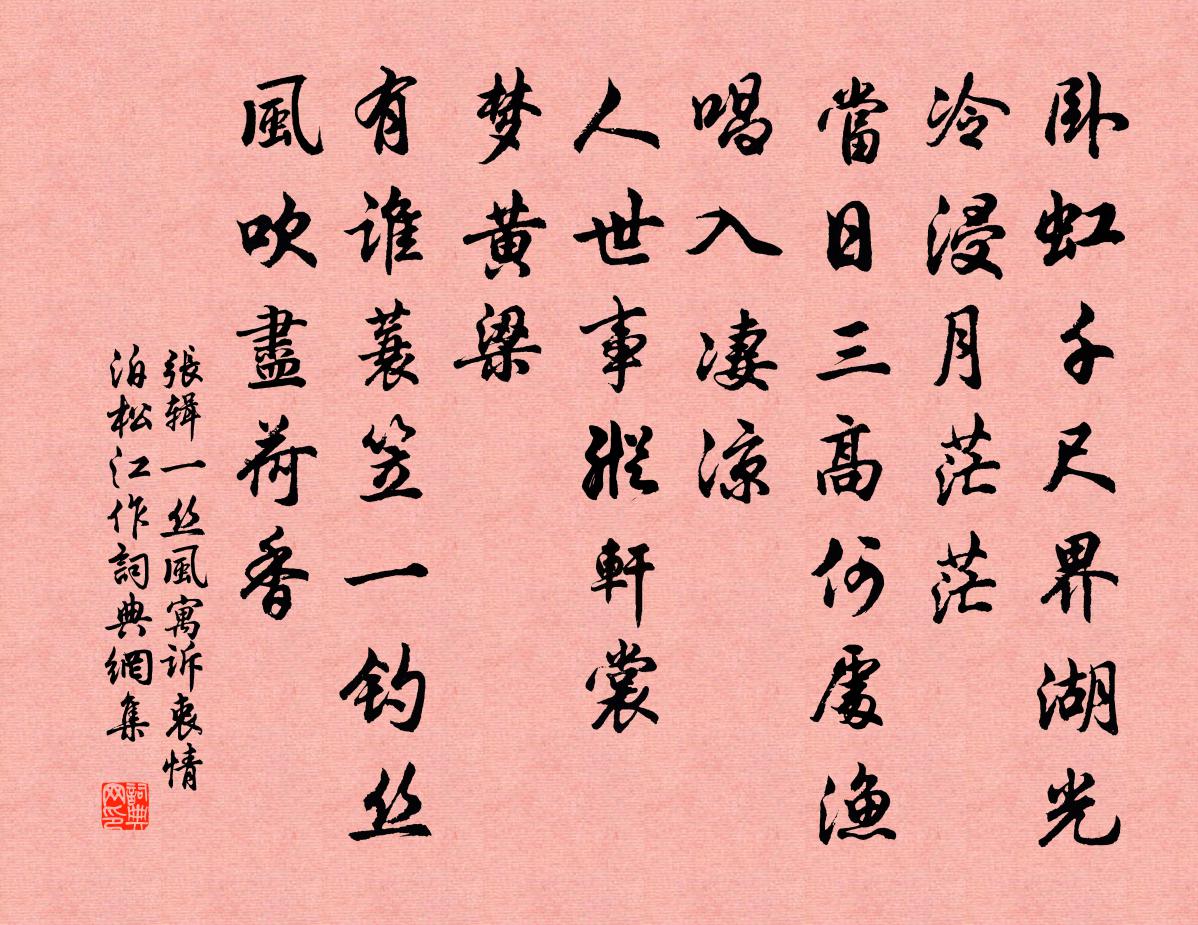 卧虹千尺界湖光
冷浸月茫茫
當日三高何處漁
唱入凄凉
人世事縱軒裳
梦黄梁
有谁蓑笠一钓丝
風吹盡荷香
張辑一丝風寓訴衷情
泊松江作詞典網集
詞典网印